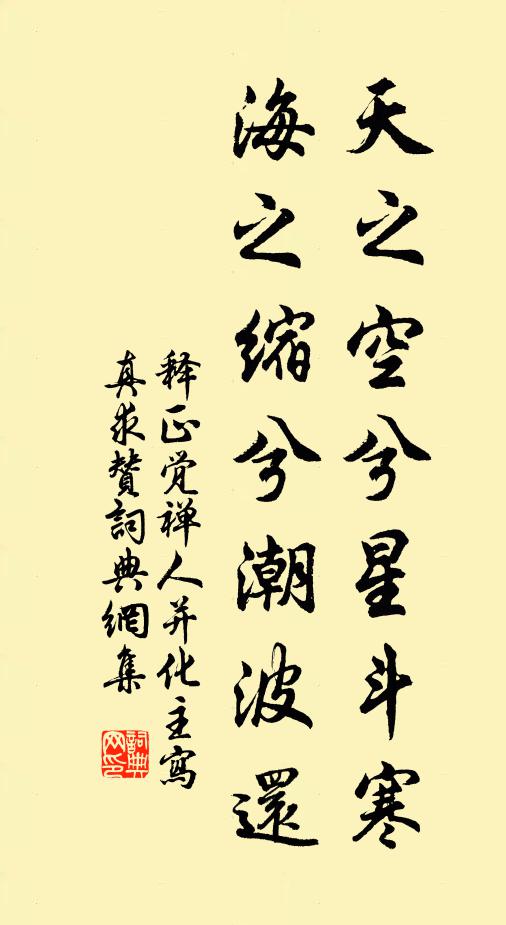 天之空兮星斗寒
海之縮兮潮波還
释正觉禅人并化主寫
真求赞詞典網集
詞典
网印